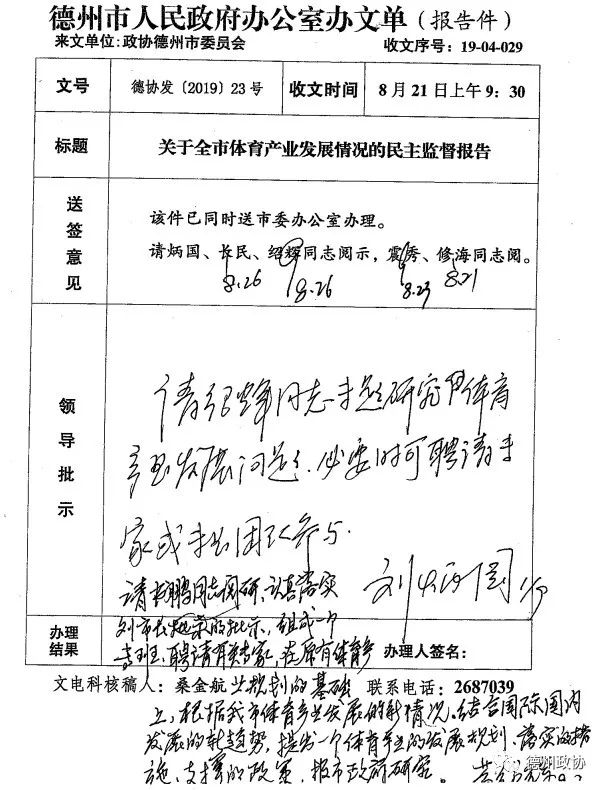 德州市人民政府办公室办文单(报告件)
来文单位:政协德州市委员会 收文序号:19-04-029
文号 德协发〔2019〕23号 收文时间 8月21日上午9:30
标题 关于全市体育产业发展情况的民主监督报告
送签意见
该件已同时送市委办公室办理。
请炳国、长民、绍辉同志阅示,震秀、修海同志阅。
8.26 8.26 8.23 8.21
领导批示
请绍辉同志专题研究体育
产业发展问题,必要时可聘请专
家或专业团队参与.
刘炳国
请 鹏同志阅研,认真落实
刘市长 的批示,组成一个
专班,聘请有关专家,在原有体育产
办理结果 办理人签名:
文电科核稿人:桑金航 联系电话:2687039
业规划的基础
上,根据我市体育产业发展的新情况,结合国际国内
发展的新趋势,提出一个体育产业的发展规划、落实的措
施、支撑的政策,报市政府研究。
德州政协